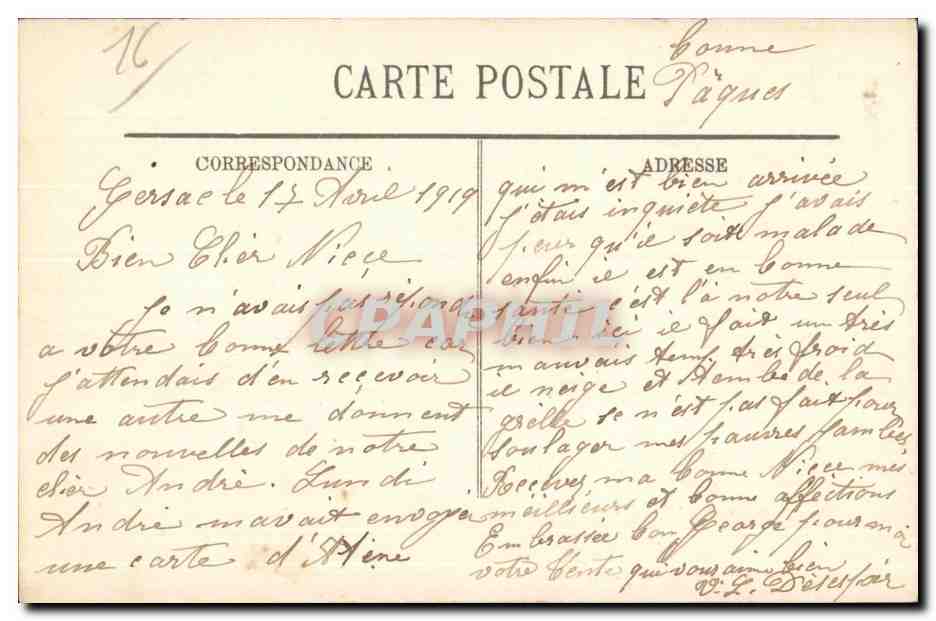 16
bonne
Pâques
CARTE POSTALE
CORRESPONDANCE
Gersac le 17 Avril 1919
Bien Chèr Nieçe
Je n'avais pas répondu
a votre bonne lettre car
j'attendais d'en reçevoir
une autre me donnent
des nouvelles de notre
chèr Andrè. Lundi
Andrè m'avait envoyer
une carte d'
ADRESSE
qui m'est bien arrivée
j'étais inquiéte j'avais
peur qu'il soit malade
enfin il est en bonne
santé c'est l'à notre seul
bien ici il fait un très
mauvais temp. très froid
il neige et tembe de la
grélle se n'est pas fait pour
soulager mes pauvres jambes
Recevez ma bonne Nieçe mes
meilleurs et bonne afféctions
Embrassèe bon George pour moi
votre tente qui vous aime bien
V. L. Désespoir
CPAPHIL